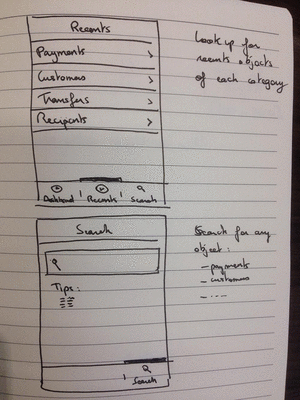 Recents
Payments
Customers
Transfers
Recipients
Dashboard
Recents
Search
Look up for
recents objects
of each category
Search
Tips:
Search
Search for any
object:
- payments
- customers
- ...